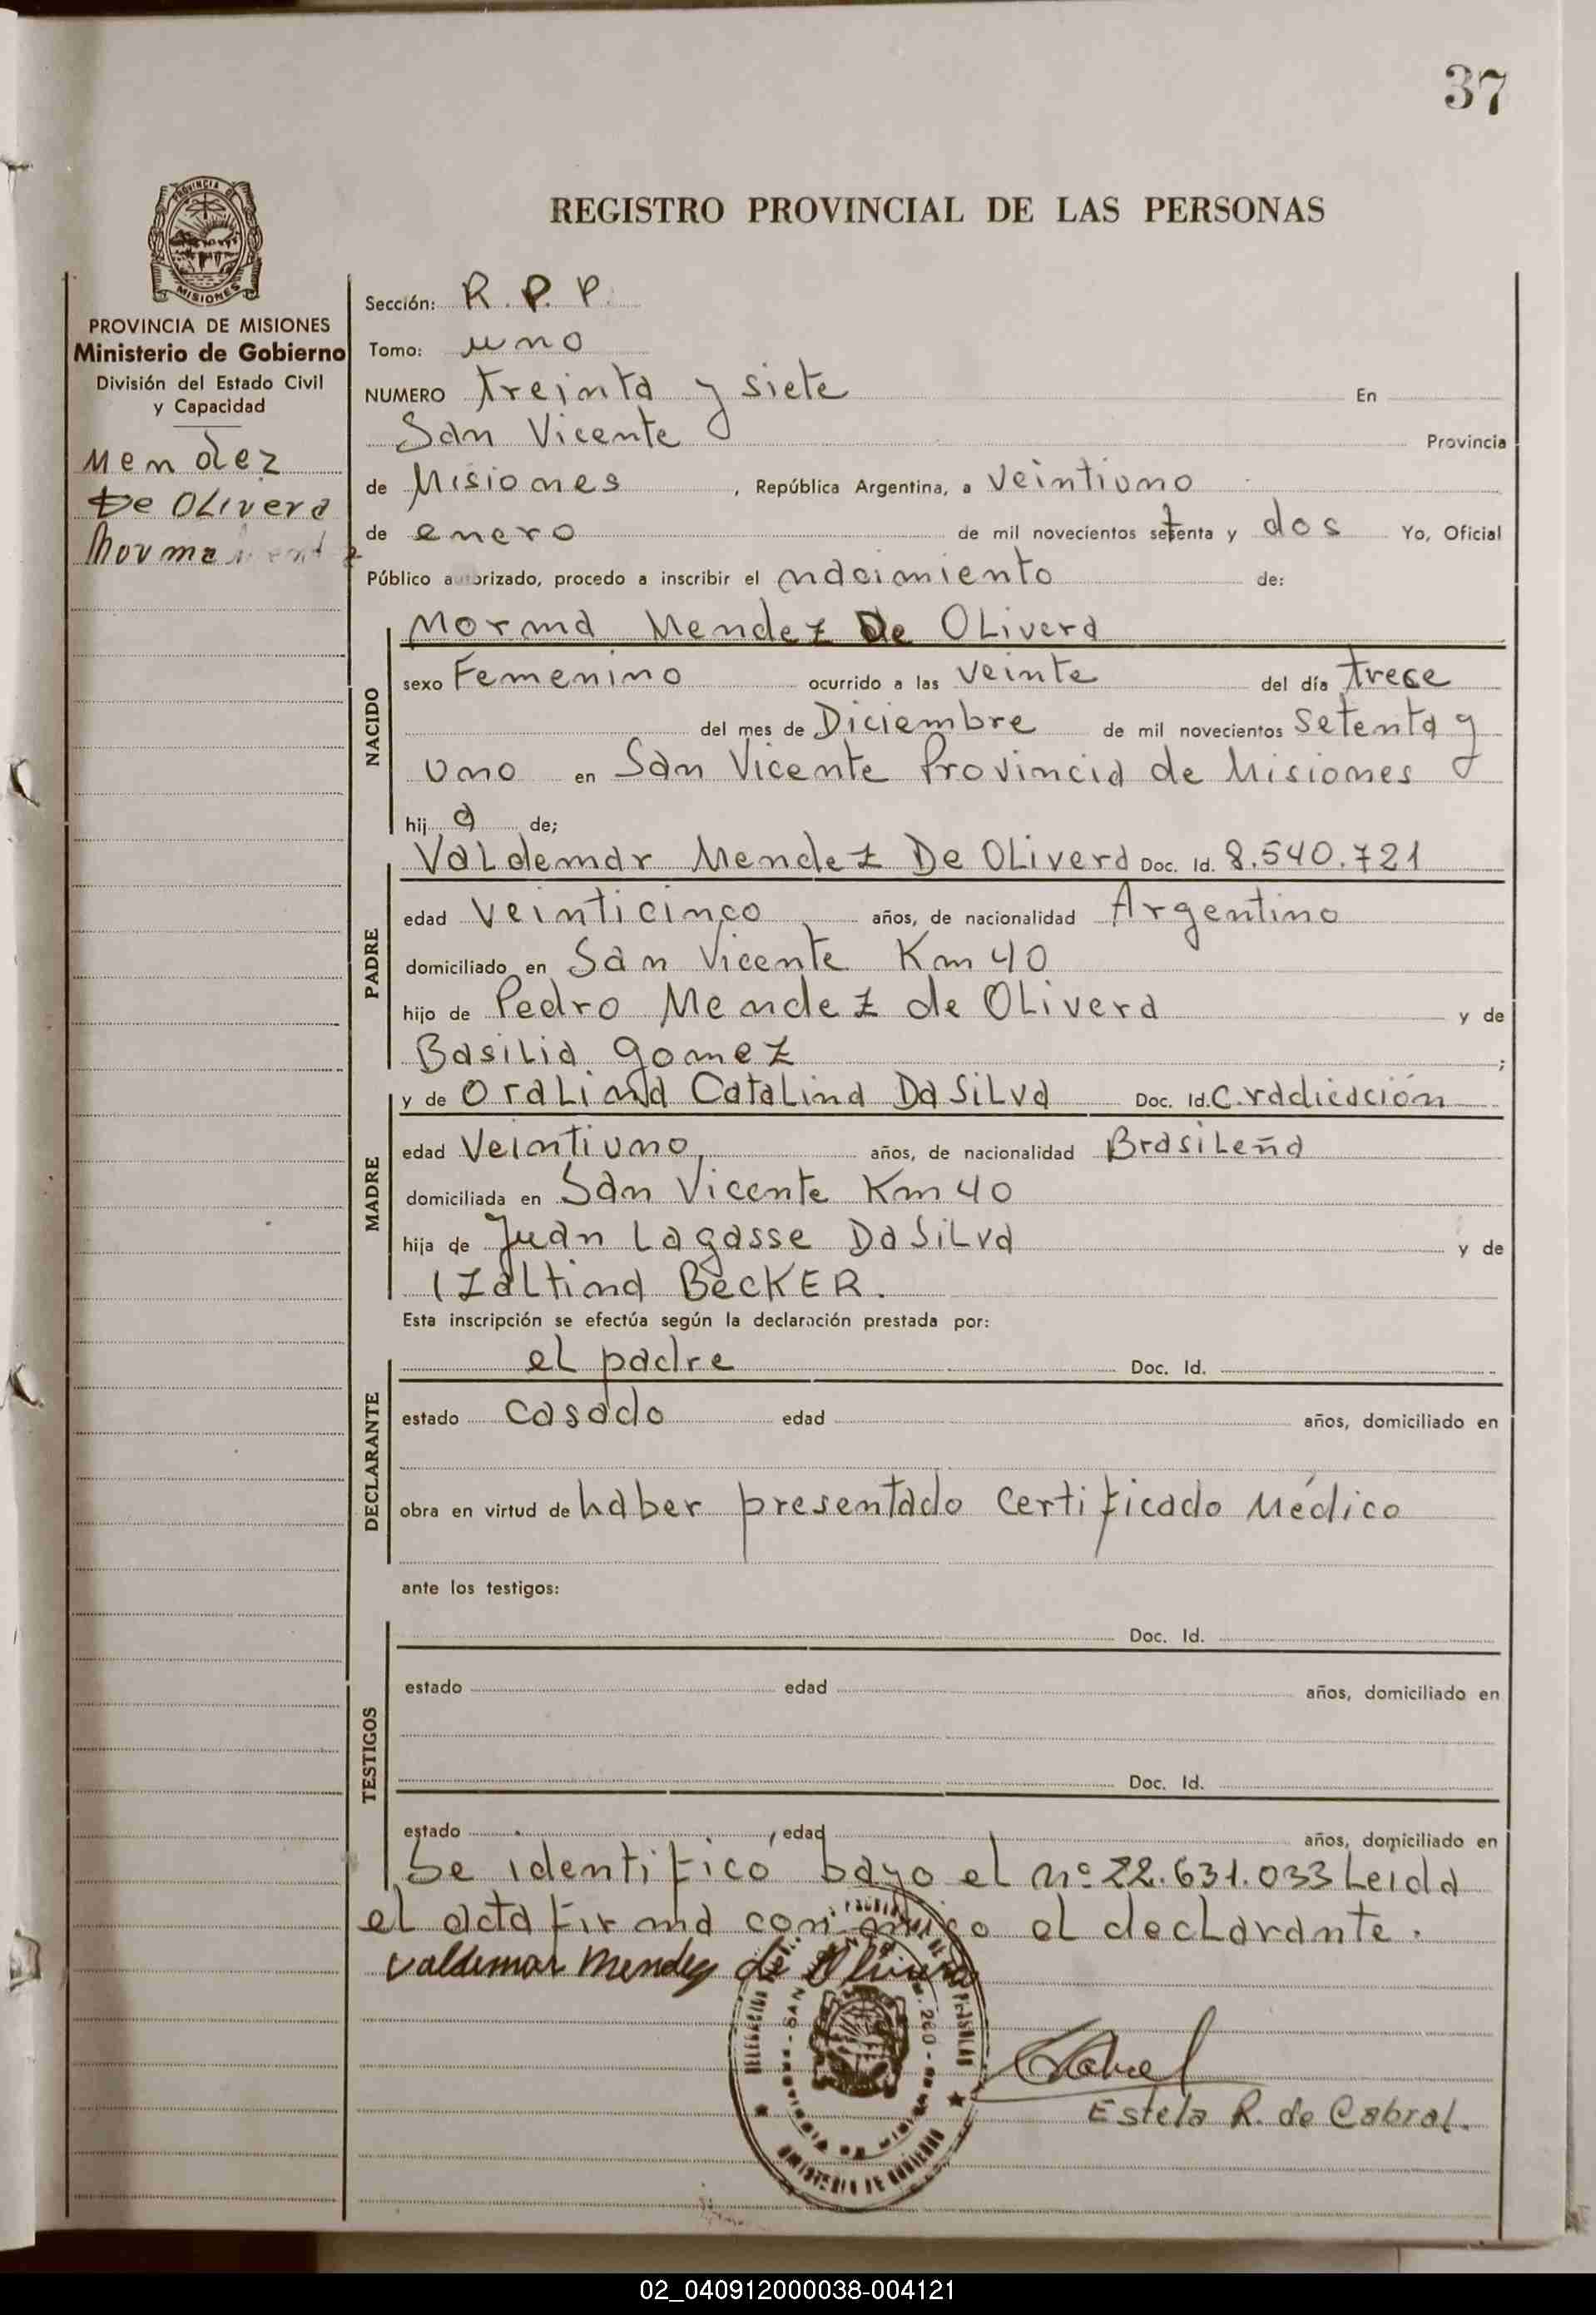 37
PROVINCIA DE
MISIONES
REGISTRO PROVINCIAL DE LAS PERSONAS
PROVINCIA DE MISIONES
Ministerio de Gobierno
División del Estado Civil
y Capacidad
Mendez
De Olivera
Norma
Sección: R. P. P.
Tomo: uno
NUMERO treinta y siete En
San Vicente Provincia
de Misiones, República Argentina, a veintiuno
de enero de mil novecientos setenta y dos Yo, Oficial
Público autorizado, procedo a inscribir el nacimiento de:
NACIDO
Norma Mendez De Olivera
sexo Femenino ocurrido a las veinte del día trece
del mes de Diciembre de mil novecientos setenta y
uno en San Vicente Provincia de Misiones
hij a de;
PADRE
Valdemar Mendez De Olivera Doc. Id. 8.540.721
edad veinticinco años, de nacionalidad Argentino
domiciliado en San Vicente Km 40
hijo de Pedro Mendez de Olivera y de
Basilia Gomez ;
MADRE
y de Oralina Catalina Da Silva Doc. Id. C. radicación
edad Veintiuno años, de nacionalidad Brasileña
domiciliada en San Vicente Km 40
hija de Juan Lagasse Da Silva y de
Izaltina Becker.
Esta inscripción se efectúa según la declaración prestada por:
DECLARANTE
el padre Doc. Id.
estado casado edad años, domiciliado en
obra en virtud de haber presentado Certificado Médico
ante los testigos:
TESTIGOS
Doc. Id.
estado edad años, domiciliado en
Doc. Id.
estado edad años, domiciliado en
Se identificó bajo el nº 22.631.033 Leida
el acta firma conmigo el declarante.
Valdemar Mendez de Olivera
MINISTERIO DE GOBIERNO
Cabral
Estela R. de Cabral.
02_040912000038-004121